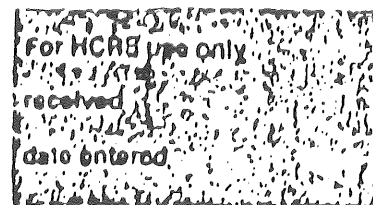 For HCRS use only
received
date entered